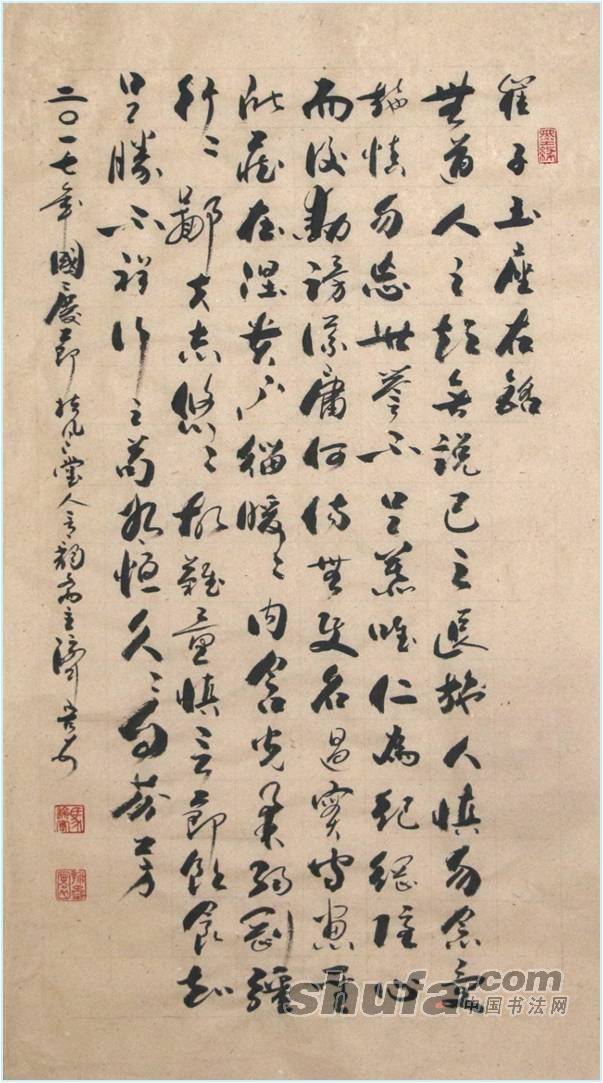 崔子玉座右銘
無道人之短無說己之長施人慎勿念受
施慎勿忘世譽不足慕唯仁為紀綱隱心
而後動謗議庸何傷無使名過實守愚聖
所藏在涅貴不緇暖々內含光柔弱剛彊
行々鄙夫志悠々故難量慎言節飲食知
足勝不祥行之苟有恒久々自芬芳
二〇一七年國慶節
shufa.com
中国书法网